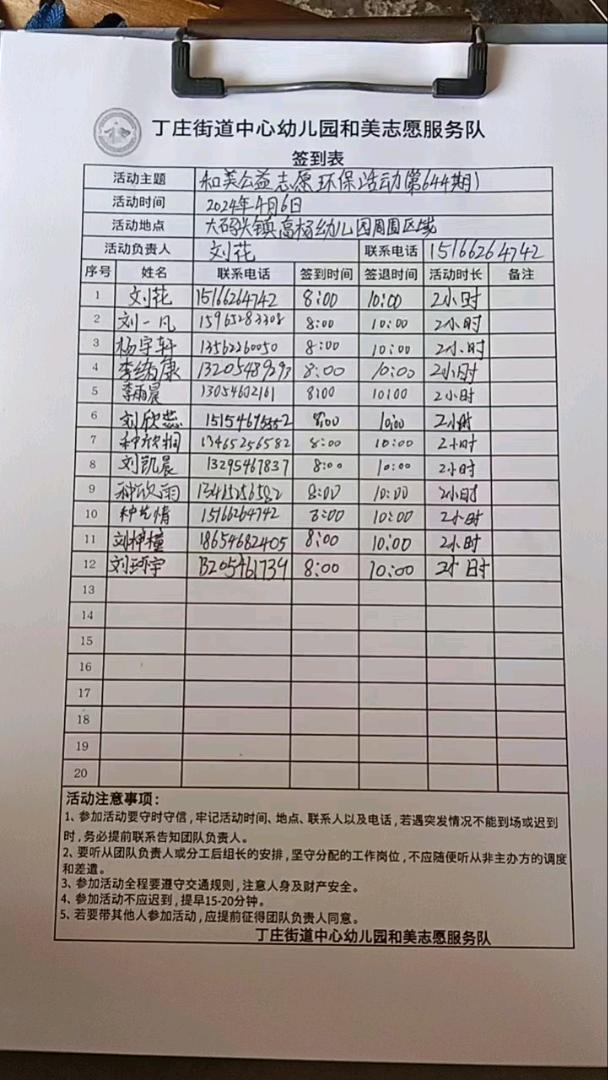 丁庄街道中心幼儿园和美志愿服务队
签到表
活动主题 和美公益志愿环保活动(第644期)
活动时间 2024年4月6日
活动地点 大码头镇高杨幼儿园周围区域
活动负责人 刘花 联系电话 15166264742
序号 姓名 联系电话 签到时间 签退时间 活动时长 备注
1 刘花 15166264742 8:00 10:00 2小时
2 刘一凡 15965283308 8:00 10:00 2小时
3 杨宇轩 13562260050 8:00 10:00 2小时
4 李绍康 8:00 10:00 2小时
5 李雨晨 13054602161 8:00 10:00 2小时
6 刘欣蕊 8:00 10:00 2小时
7 13465256582 8:00 10:00 2小时
8 刘凯晨 13295467837 8:00 10:00 2小时
9 8:00 10:00 2小时
10 15166264742 8:00 10:00 2小时
11 18654682405 8:00 10:00 2小时
12 13205461739 8:00 10:00 2小时
13
14
15
16
17
18
19
20
活动注意事项：
1、参加活动要守时守信，牢记活动时间、地点、联系人以及电话，若遇突发情况不能到场或迟到
时，务必提前联系告知团队负责人。
2、要听从团队负责人或分工后组长的安排，坚守分配的工作岗位，不应随便听从非主办方的调度
和差遣。
3、参加活动全程要遵守交通规则，注意人身及财产安全。
4、参加活动不应迟到，提早15-20分钟。
5、若要带其他人参加活动，应提前征得团队负责人同意。
丁庄街道中心幼儿园和美志愿服务队